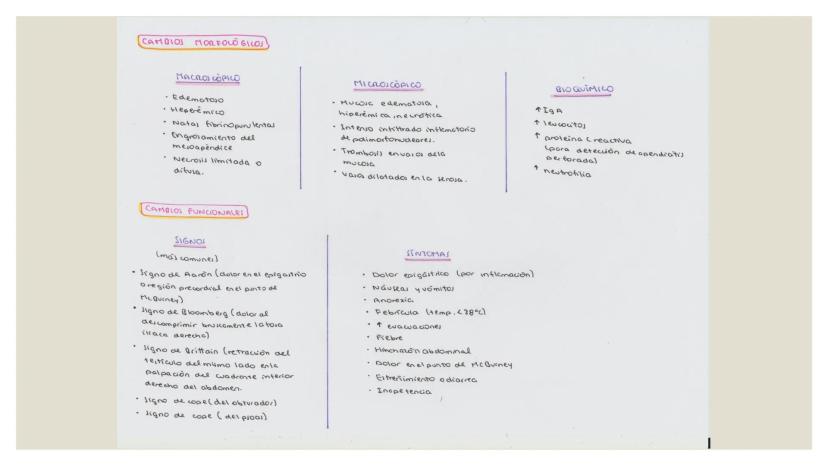 CAMBIOS MORFOLÓGICOS
MACROSCÓPICO
• Edematoso
• Hiperémico
• Natas fibrinopurulentas
• Engrosamiento del
mesoapéndice
• Necrosis limitada o
difusa.
MICROSCÓPICO
• Mucosa edematosa,
hiperémica, necrótica
• Intenso infiltrado inflamatorio
de polimorfonucleares.
• Trombosis en vasos de la
mucosa
• Vasos dilatados en la serosa.
BIOQUÍMICO
↑ IgA
↑ leucocitos
↑ proteína C reactiva
(para detección de apendicitis
perforada)
↑ neutrofilia
CAMBIOS FUNCIONALES
SIGNOS
(más comunes)
• Signo de Aarón (dolor en el epigastrio
o región precordial en el punto de
McBurney)
• Signo de Bloomberg (dolor al
descomprimir bruscamente la fosa
iliaca derecha)
• Signo de Brittain (retracción del
testículo del mismo lado en la
palpación del cuadrante inferior
derecho del abdomen.
• Signo de cope (del obturador)
• Signo de cope (del psoas)
SÍNTOMAS
• Dolor epigástrico (por inflamación)
• Náuseas y vómitos
• Anorexia
• Febrícula (temp. <38°C)
• ↑ evacuaciones
• Fiebre
• Hinchazón abdominal
• Dolor en el punto de McBurney
• Estreñimiento o diarrea
• Inapetencia